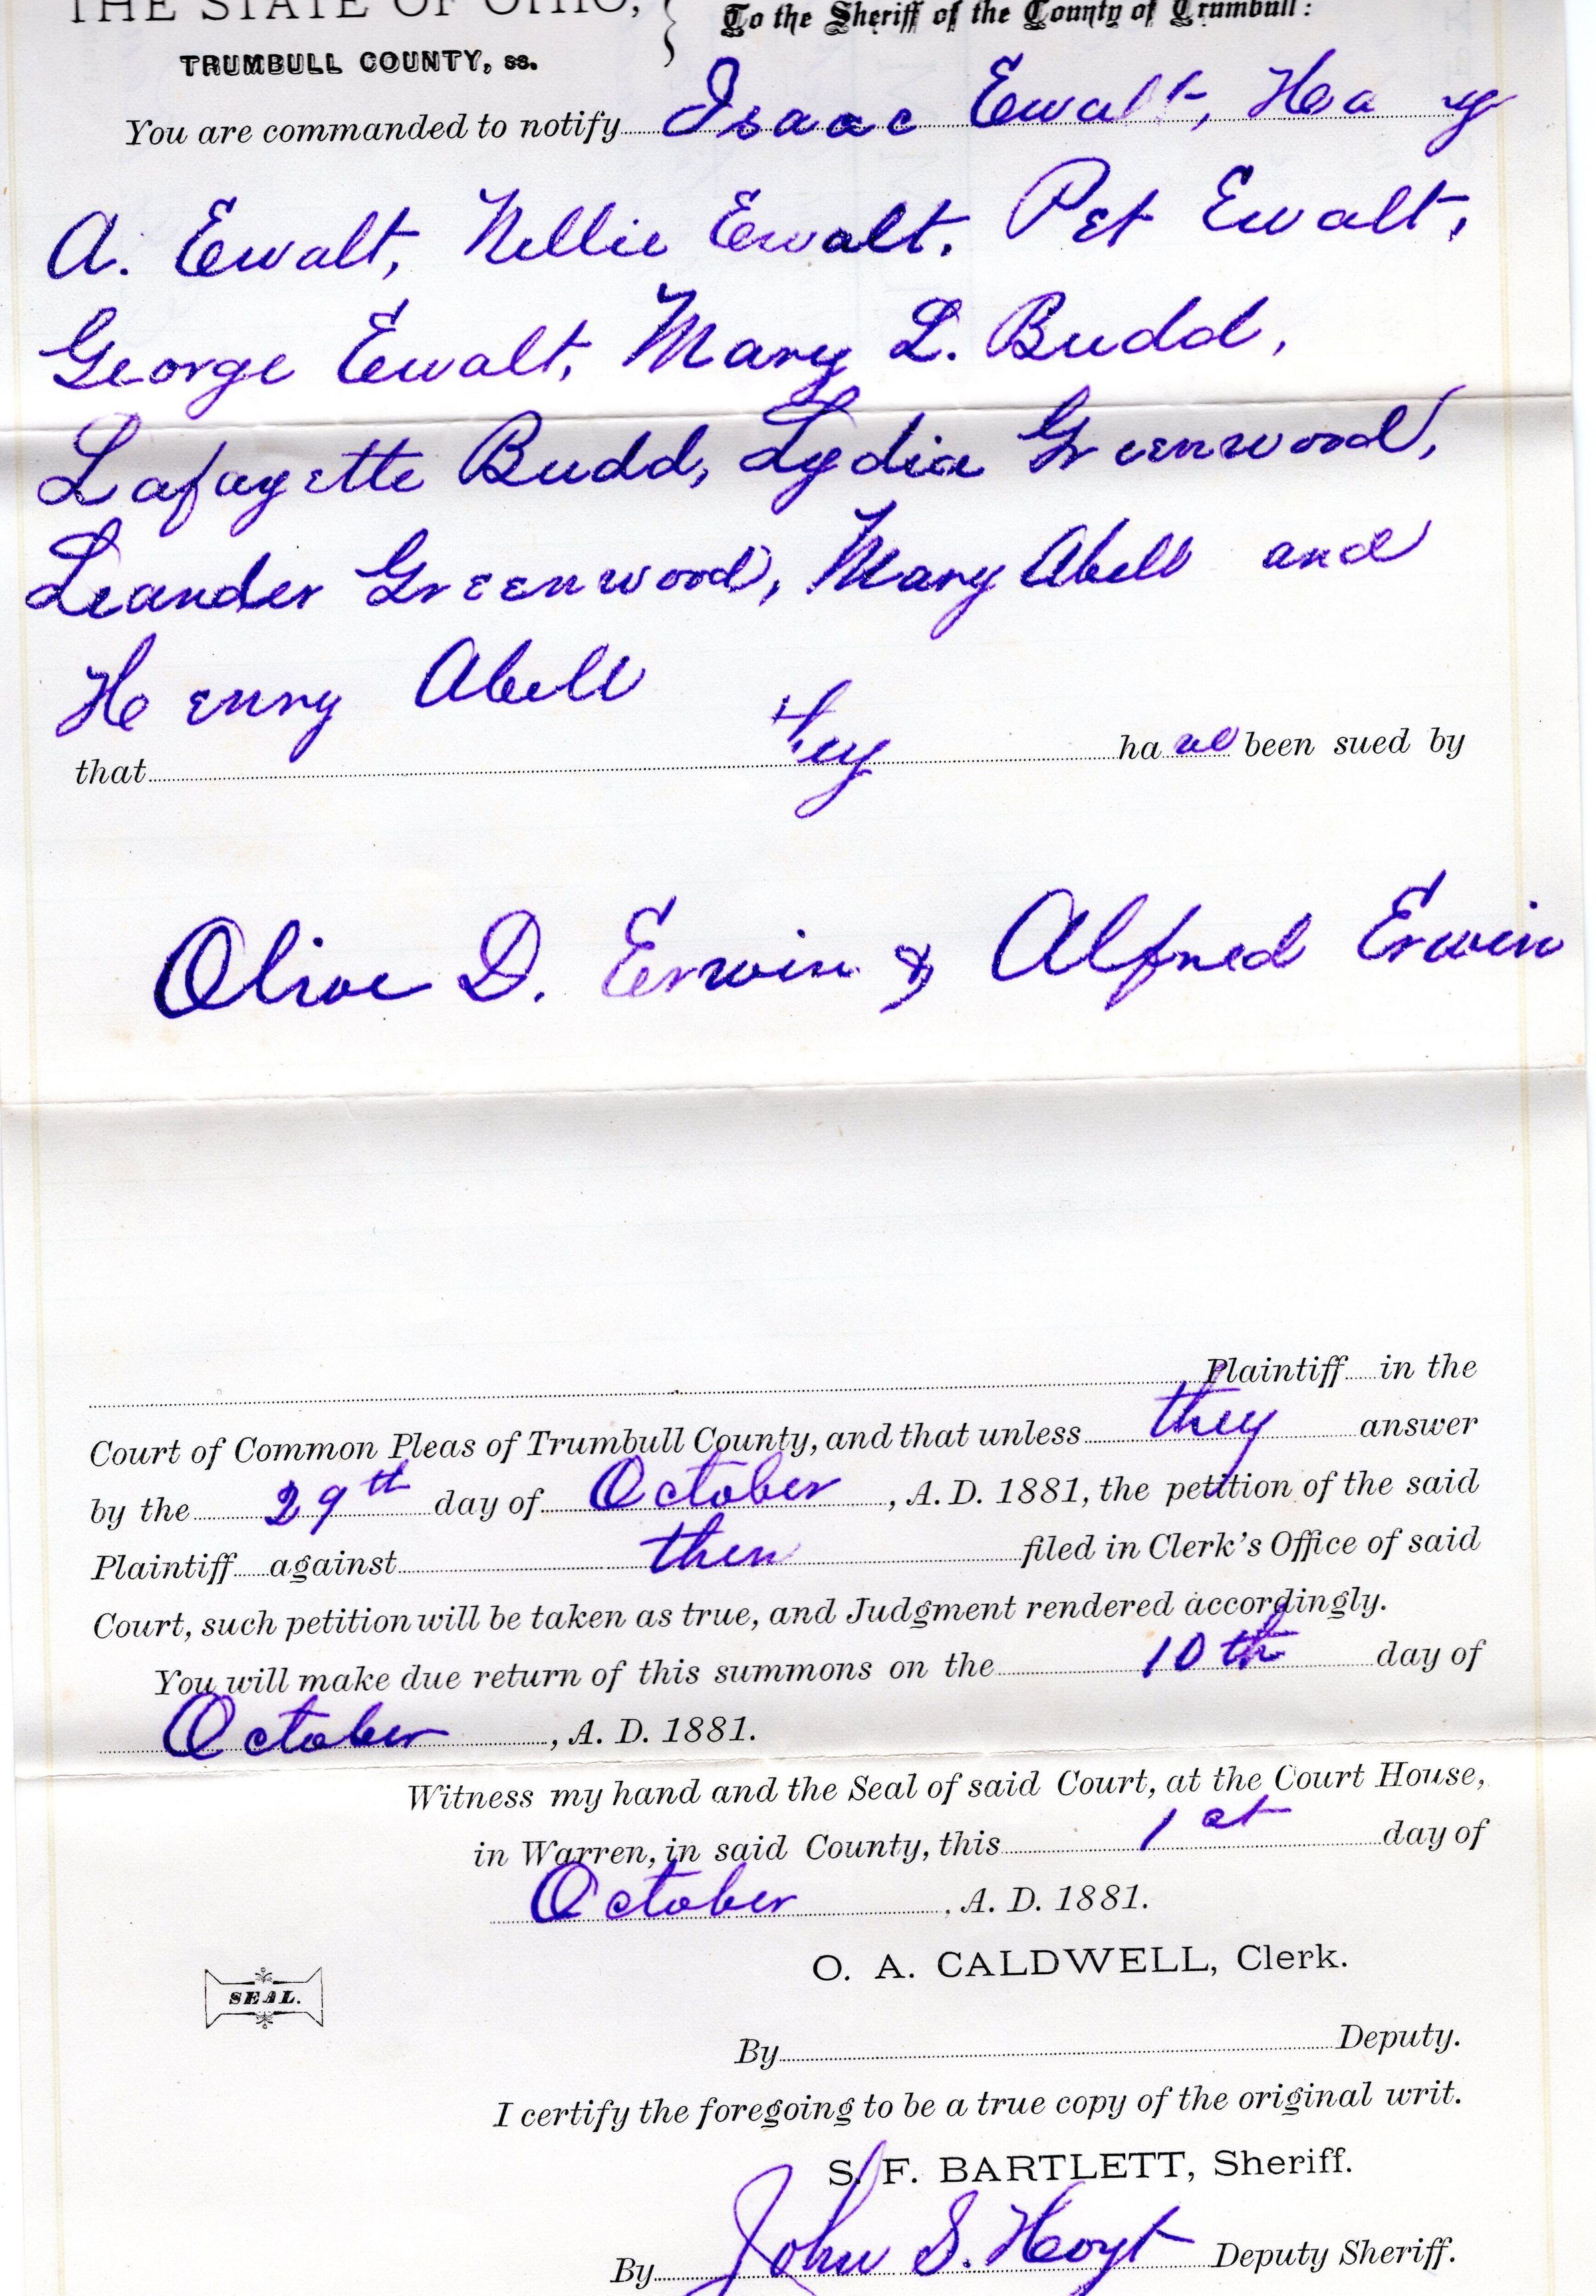 THE STATE OF OHIO,
TRUMBULL COUNTY, ss.
To the Sheriff of the County of Trumbull:
You are commanded to notify Isaac Ewalt,
A. Ewalt, Nellie Ewalt, Pet Ewalt,
George Ewalt, Mary L. Budd,
Lafayette Budd, Lydia Greenwood,
Leander Greenwood, Mary Abell and
Henry Abell
that they have been sued by
Olive D. Erwin & Alfred Erwin
Plaintiff in the
Court of Common Pleas of Trumbull County, and that unless they answer
by the 29th day of October, A. D. 1881, the petition of the said
Plaintiff against them filed in Clerk's Office of said
Court, such petition will be taken as true, and Judgment rendered accordingly.
You will make due return of this summons on the 10th day of
October, A. D. 1881.
Witness my hand and the Seal of said Court, at the Court House,
in Warren, in said County, this 1st day of
October, A. D. 1881.
O. A. CALDWELL, Clerk.
SEAL.
By Deputy.
I certify the foregoing to be a true copy of the original writ.
S. F. BARTLETT, Sheriff.
By John S. Hoyt Deputy Sheriff.